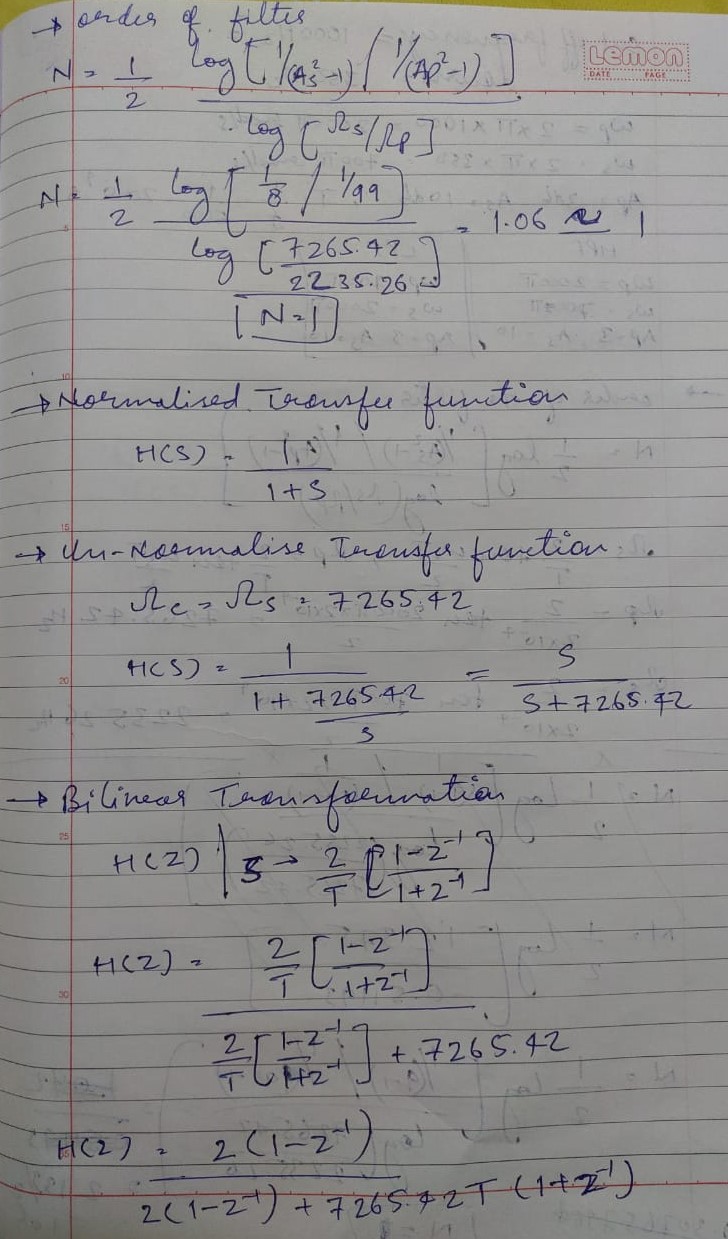 → order of filter
Lemon
DATE PAGE
N = 1/2 log [ 1/(As²-1) / 1/(Ap²-1) ] / log [Ωs/Ωp]
N = 1/2 log [ 1/8 / 1/99 ] / log [ 7265.42 / 2235.26 ] = 1.06 ≈ 1
N = 1
→ Normalised Transfer function
H(S) = 1 / 1+S
→ Un-Normalise Transfer function .
Ωc = Ωs = 7265.42
H(S) = 1 / 1 + 7265.42/S = S / S + 7265.42
→ Bilinear Transformation
H(Z) | S → 2/T [ 1-Z⁻¹ / 1+Z⁻¹ ]
H(Z) = 2/T [ 1-Z⁻¹ / 1+Z⁻¹ ] / 2/T [ 1-Z⁻¹ / 1+Z⁻¹ ] + 7265.42
H(Z) = 2(1-Z⁻¹) / 2(1-Z⁻¹) + 7265.42T (1+Z⁻¹)